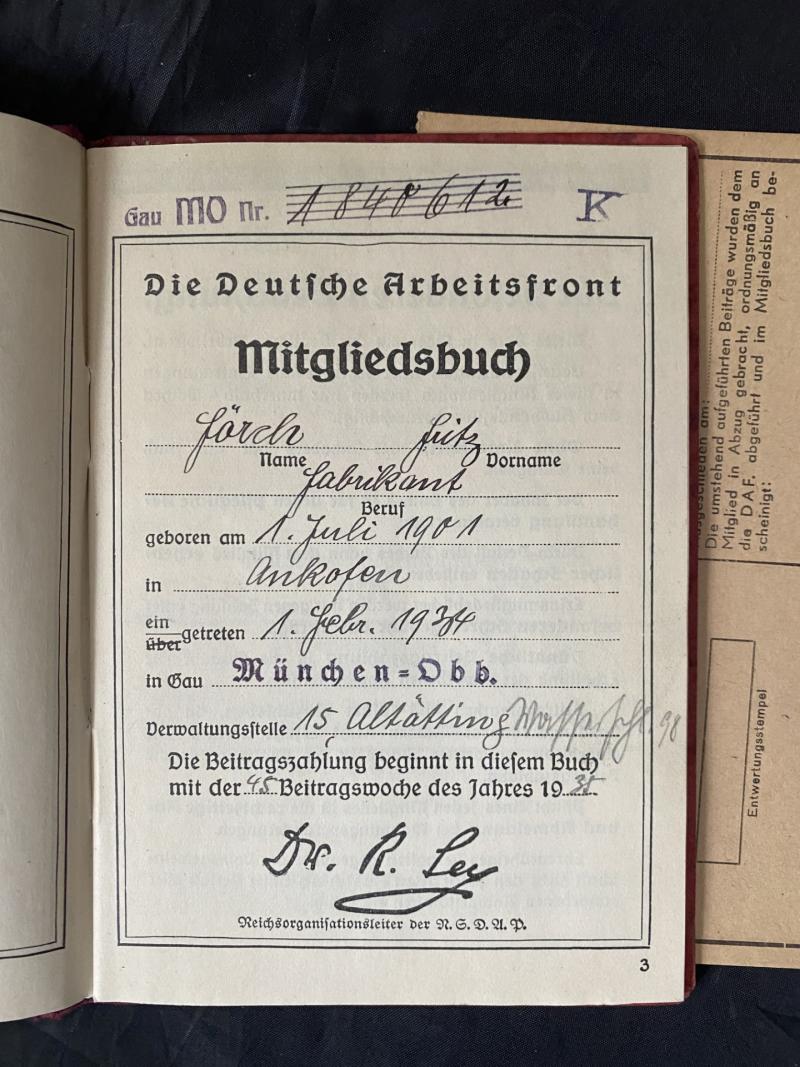 Gau MO Nr. 1840612. K
Die Deutsche Arbeitsfront
Mitgliedsbuch
Förch Fritz
Name Vorname
Fabrikant
Beruf
geboren am 1. Juli 1901
in Ankofen
ein
über getreten 1. Febr. 1934
in Gau München-Obb.
Verwaltungsstelle 15 Altötting
Die Beitragszahlung beginnt in diesem Buch
mit der 45. Beitragswoche des Jahres 1935
Dr. R. Ley
Reichsorganisationsleiter der N.S.D.A.P.
3
ausgeschieden am:
Die umstehend aufgeführten Beiträge wurden dem
Mitglied in Abzug gebracht, ordnungsmäßig an
die DAF. abgeführt und im Mitgliedsbuch be-
scheinigt:
Entwertungsstempel